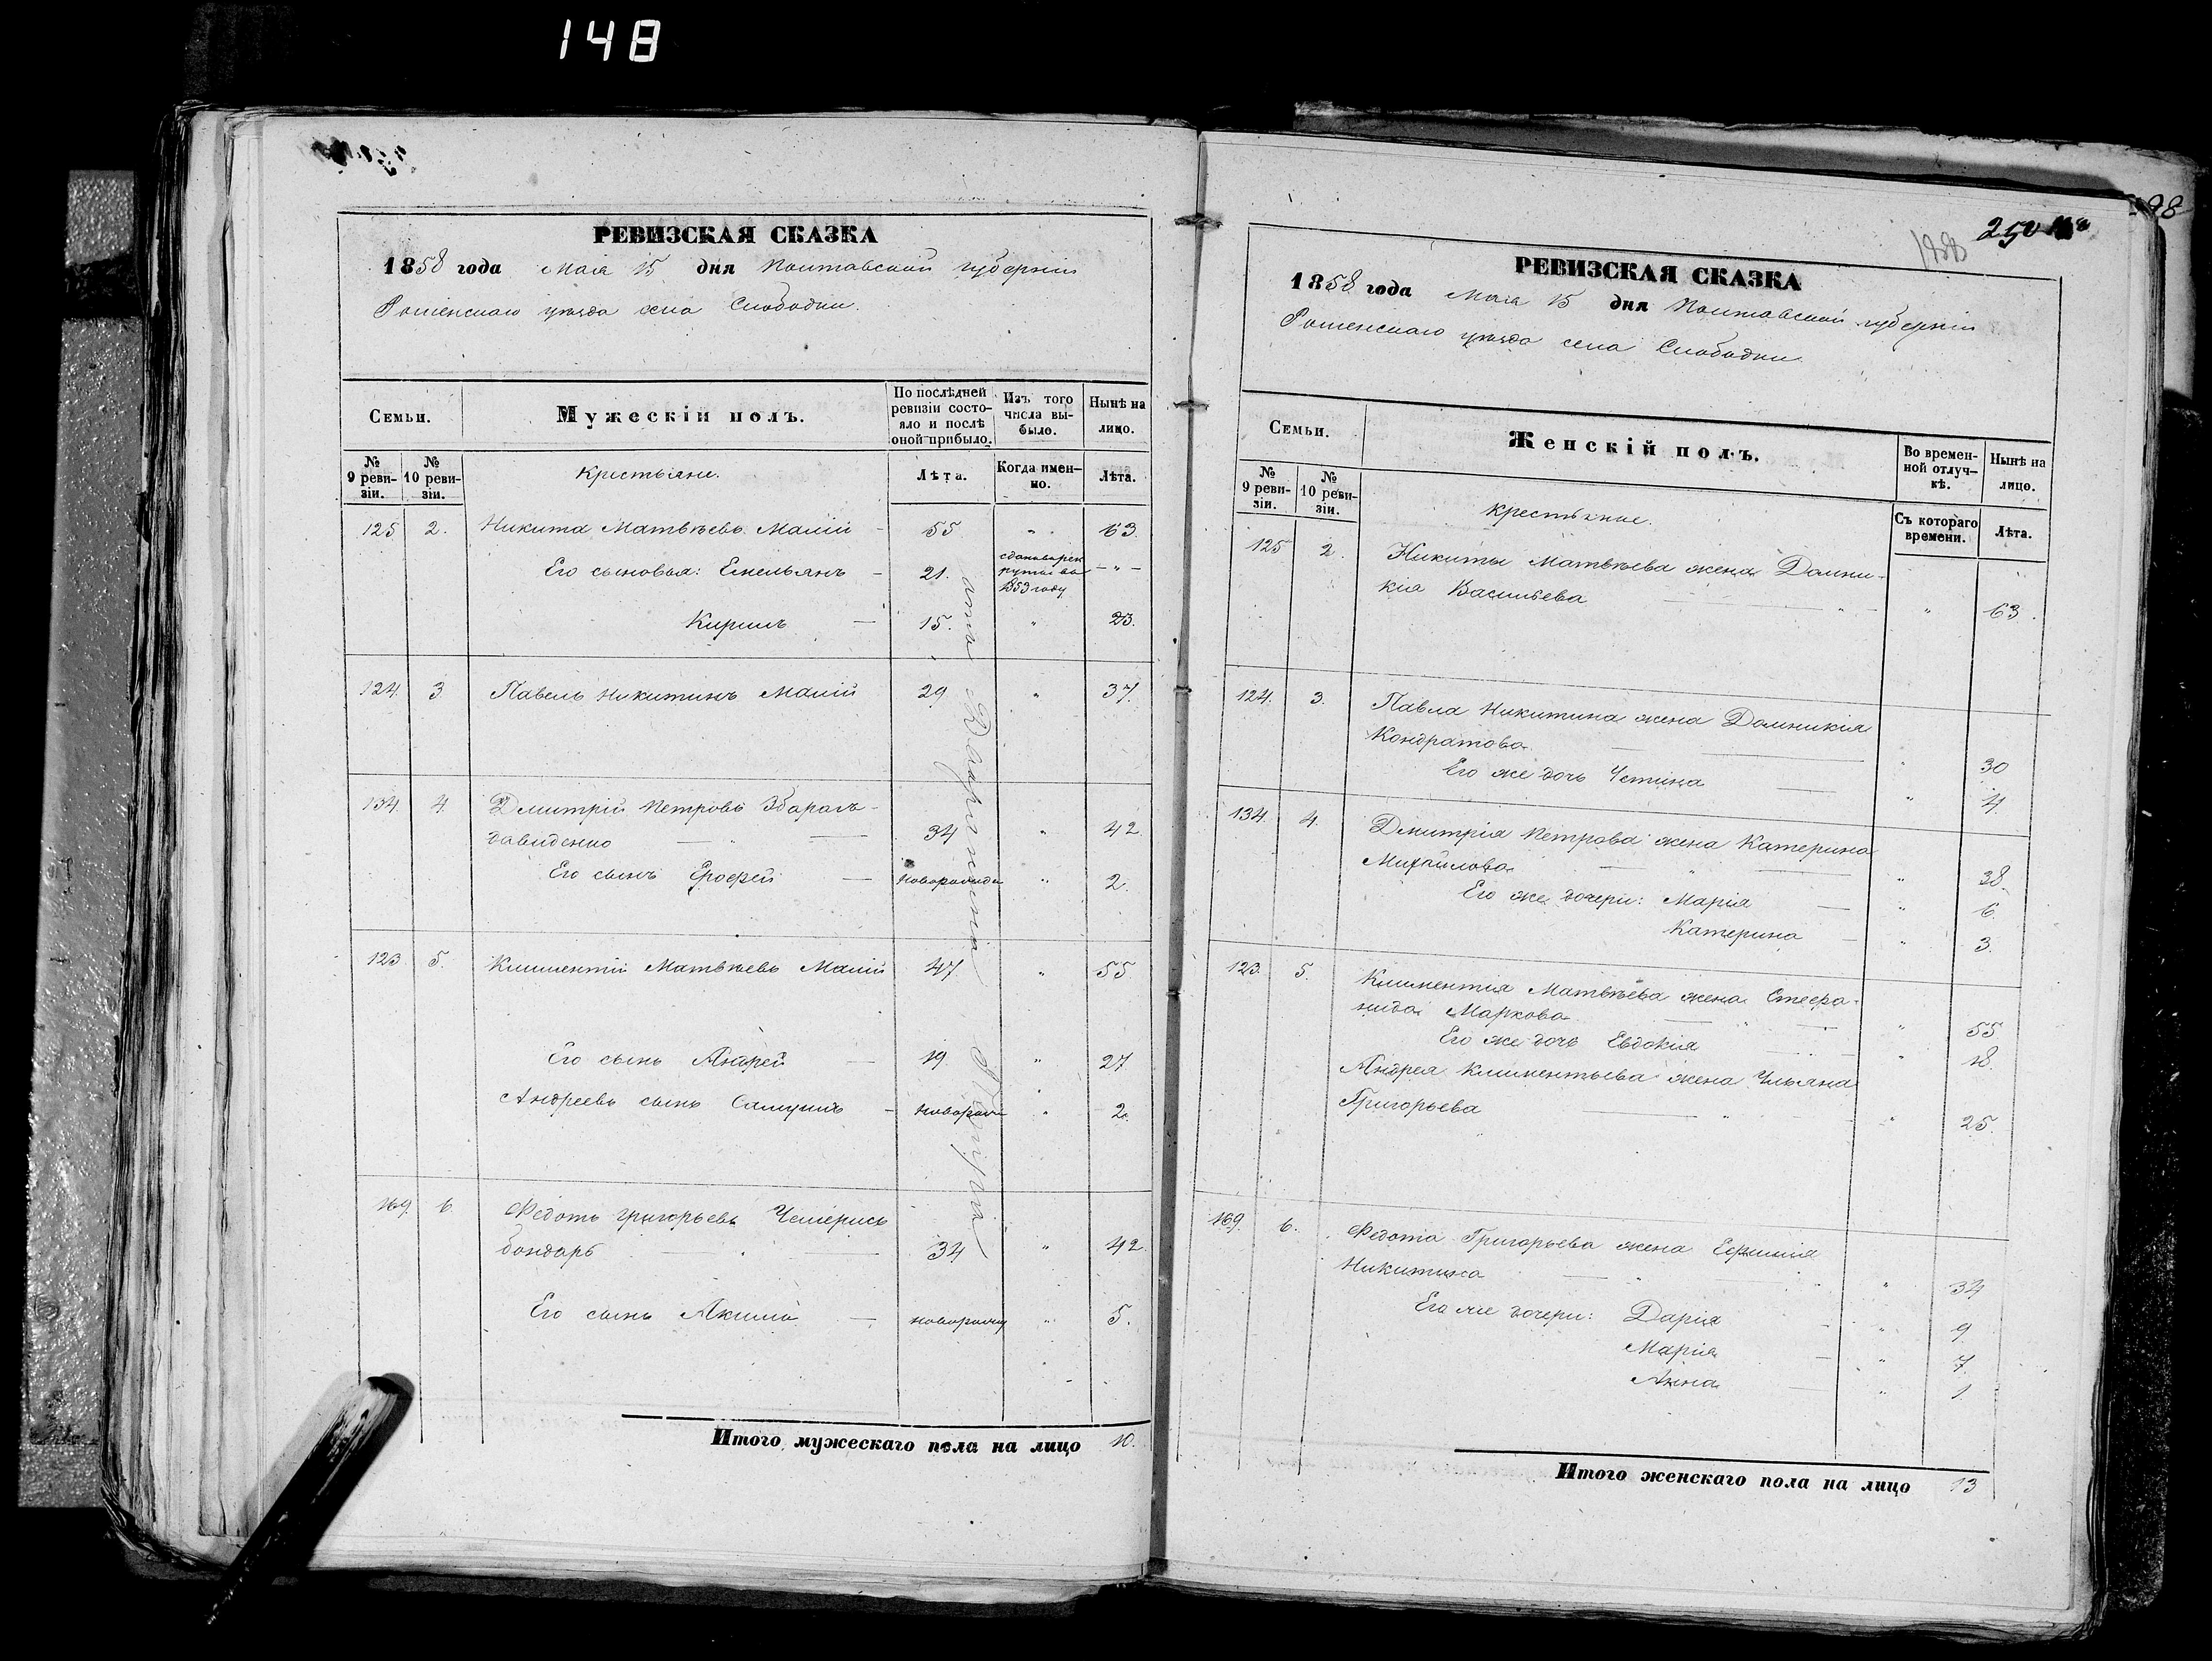 148
РЕВИЗСКАЯ СКАЗКА
1858 года Мая 15 дня Полтавской губерніи
Роменскаго уѣзда села Слободки.
Семьи.
Мужескій полъ.
По послѣдней ревизіи состояло и послѣ оной прибыло.
Изъ того числа выбыло.
Нынѣ на лицо.
№ 9 ревизіи.
№ 10 ревизіи.
Крестьяне.
Лѣта.
Когда именно.
Лѣта.
125 2. Никита Матвѣевъ Малій - 55 " 63.
Его сыновья: Емельянъ - 21. сданъ въ рекруты въ 1853 году - " -
Кирилъ - 15. " 23.
124 3 Павелъ Никитинъ Малій 29 " 37.
134 4. Дмитрій Петровъ Збараж-
давиденко - " - 34 " 42.
Его сынъ Ерофей - новорожд " 2.
123 5. Климентій Матвѣевъ Малій 47 " 55.
Его сынъ Андрей - 19. " 27
Андреевъ сынъ Самуилъ - новорож " 2.
169. 6. Федотъ Григорьевъ Чемерисъ
бондарь - " - 34 " 42.
Его сынъ Акимъ - новорожд " 5.
Итого мужескаго пола на лицо 10.
198
250
188
РЕВИЗСКАЯ СКАЗКА
1858 года Мая 15 дня Полтавской губерніи
Роменскаго уѣзда села Слободки.
Семьи.
Женскій полъ.
Во временной отлучкѣ.
Нынѣ на лицо.
№ 9 ревизіи.
№ 10 ревизіи.
Крестьяне.
Съ котораго времени.
Лѣта.
125 2. Никиты Матвѣева жена Домни-
кія Васильева - " - " 63.
124. 3. Павла Никитина жена Домникія
Кондратова - " 30
Его же дочь Устина - " 4.
134. 4. Дмитрія Петрова жена Катерина
Михайлова - " - " 38.
Его же дочери: Марія - " 6.
Катерина - " 3.
123. 5. Климентія Матвѣева жена Стефа-
нида Маркова - " - " 55
Его же дочь Евдокія - " 18.
Андрея Климентьева жена Ульяна
Григорьева - " - " 25.
169. 6. Федота Григорьева жена Ефимія
Никитина - " - " 34
Его же дочери: Дарія - " 9
Марія - " 7.
Анна - " 1
Итого женскаго пола на лицо 13